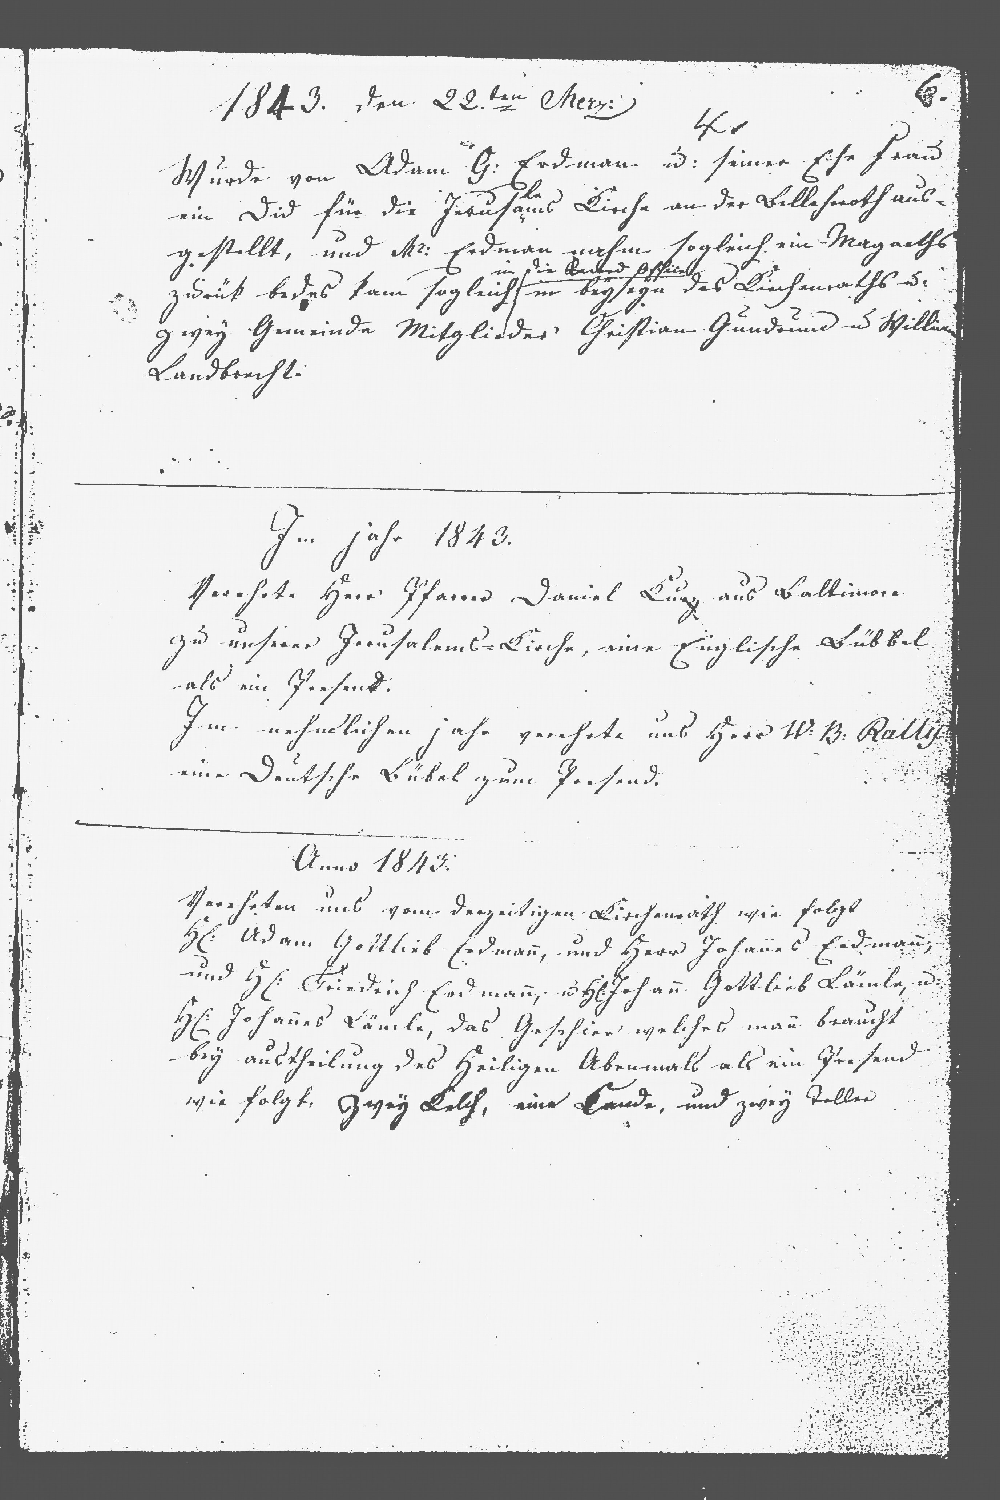 6.
1843. den 22.ten Merz:
Wurde von Adam G: Erdman u: seiner Ehe Frau
ein Did für die Jerusalems Kirche an der Bellehroth aus-
gestellt, und Mr: Erdman nahm sogleich ein Magneths
in die Record Office
zurük bedes kam sogleich in beyseyn des Kirchenraths u:
zwey Gemeinde Mitglieder Christian Gundrum u Willem
Landbrecht.
Im jahr 1843.
Verehrte Herr Pfarrer Daniel Kurz aus Baltimore
zu unserer Jerusalems-Kirche, eine Englische Bübbel
als ein Presend.
Im nehmlichen jahr verehrte uns Herr W. B. Rally
eine Deutsche Bübel zum Presend.
Anno 1843.
Verehrten uns vom derzeitigen Kirchenrath wie folgt
H: Adam Gottlieb Erdmann, und Herr Johannes Erdmann,
und H: Friedrich Erdmann, u H: Johann Gottlieb Lämle, u:
H: Johannes Lämle, das Geschirr welches mann braucht
bey austheilung des Heiligen Abenmals als ein Presend
wie folgt. Zwey Kelch, eine Kande, und zwey Teller